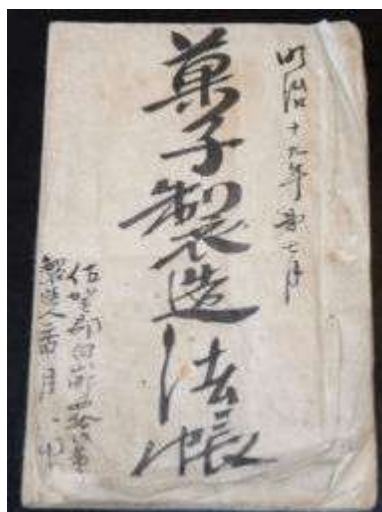 明治十九年第七月
菓子製造法帳
佐賀郡白山町
製造人香月